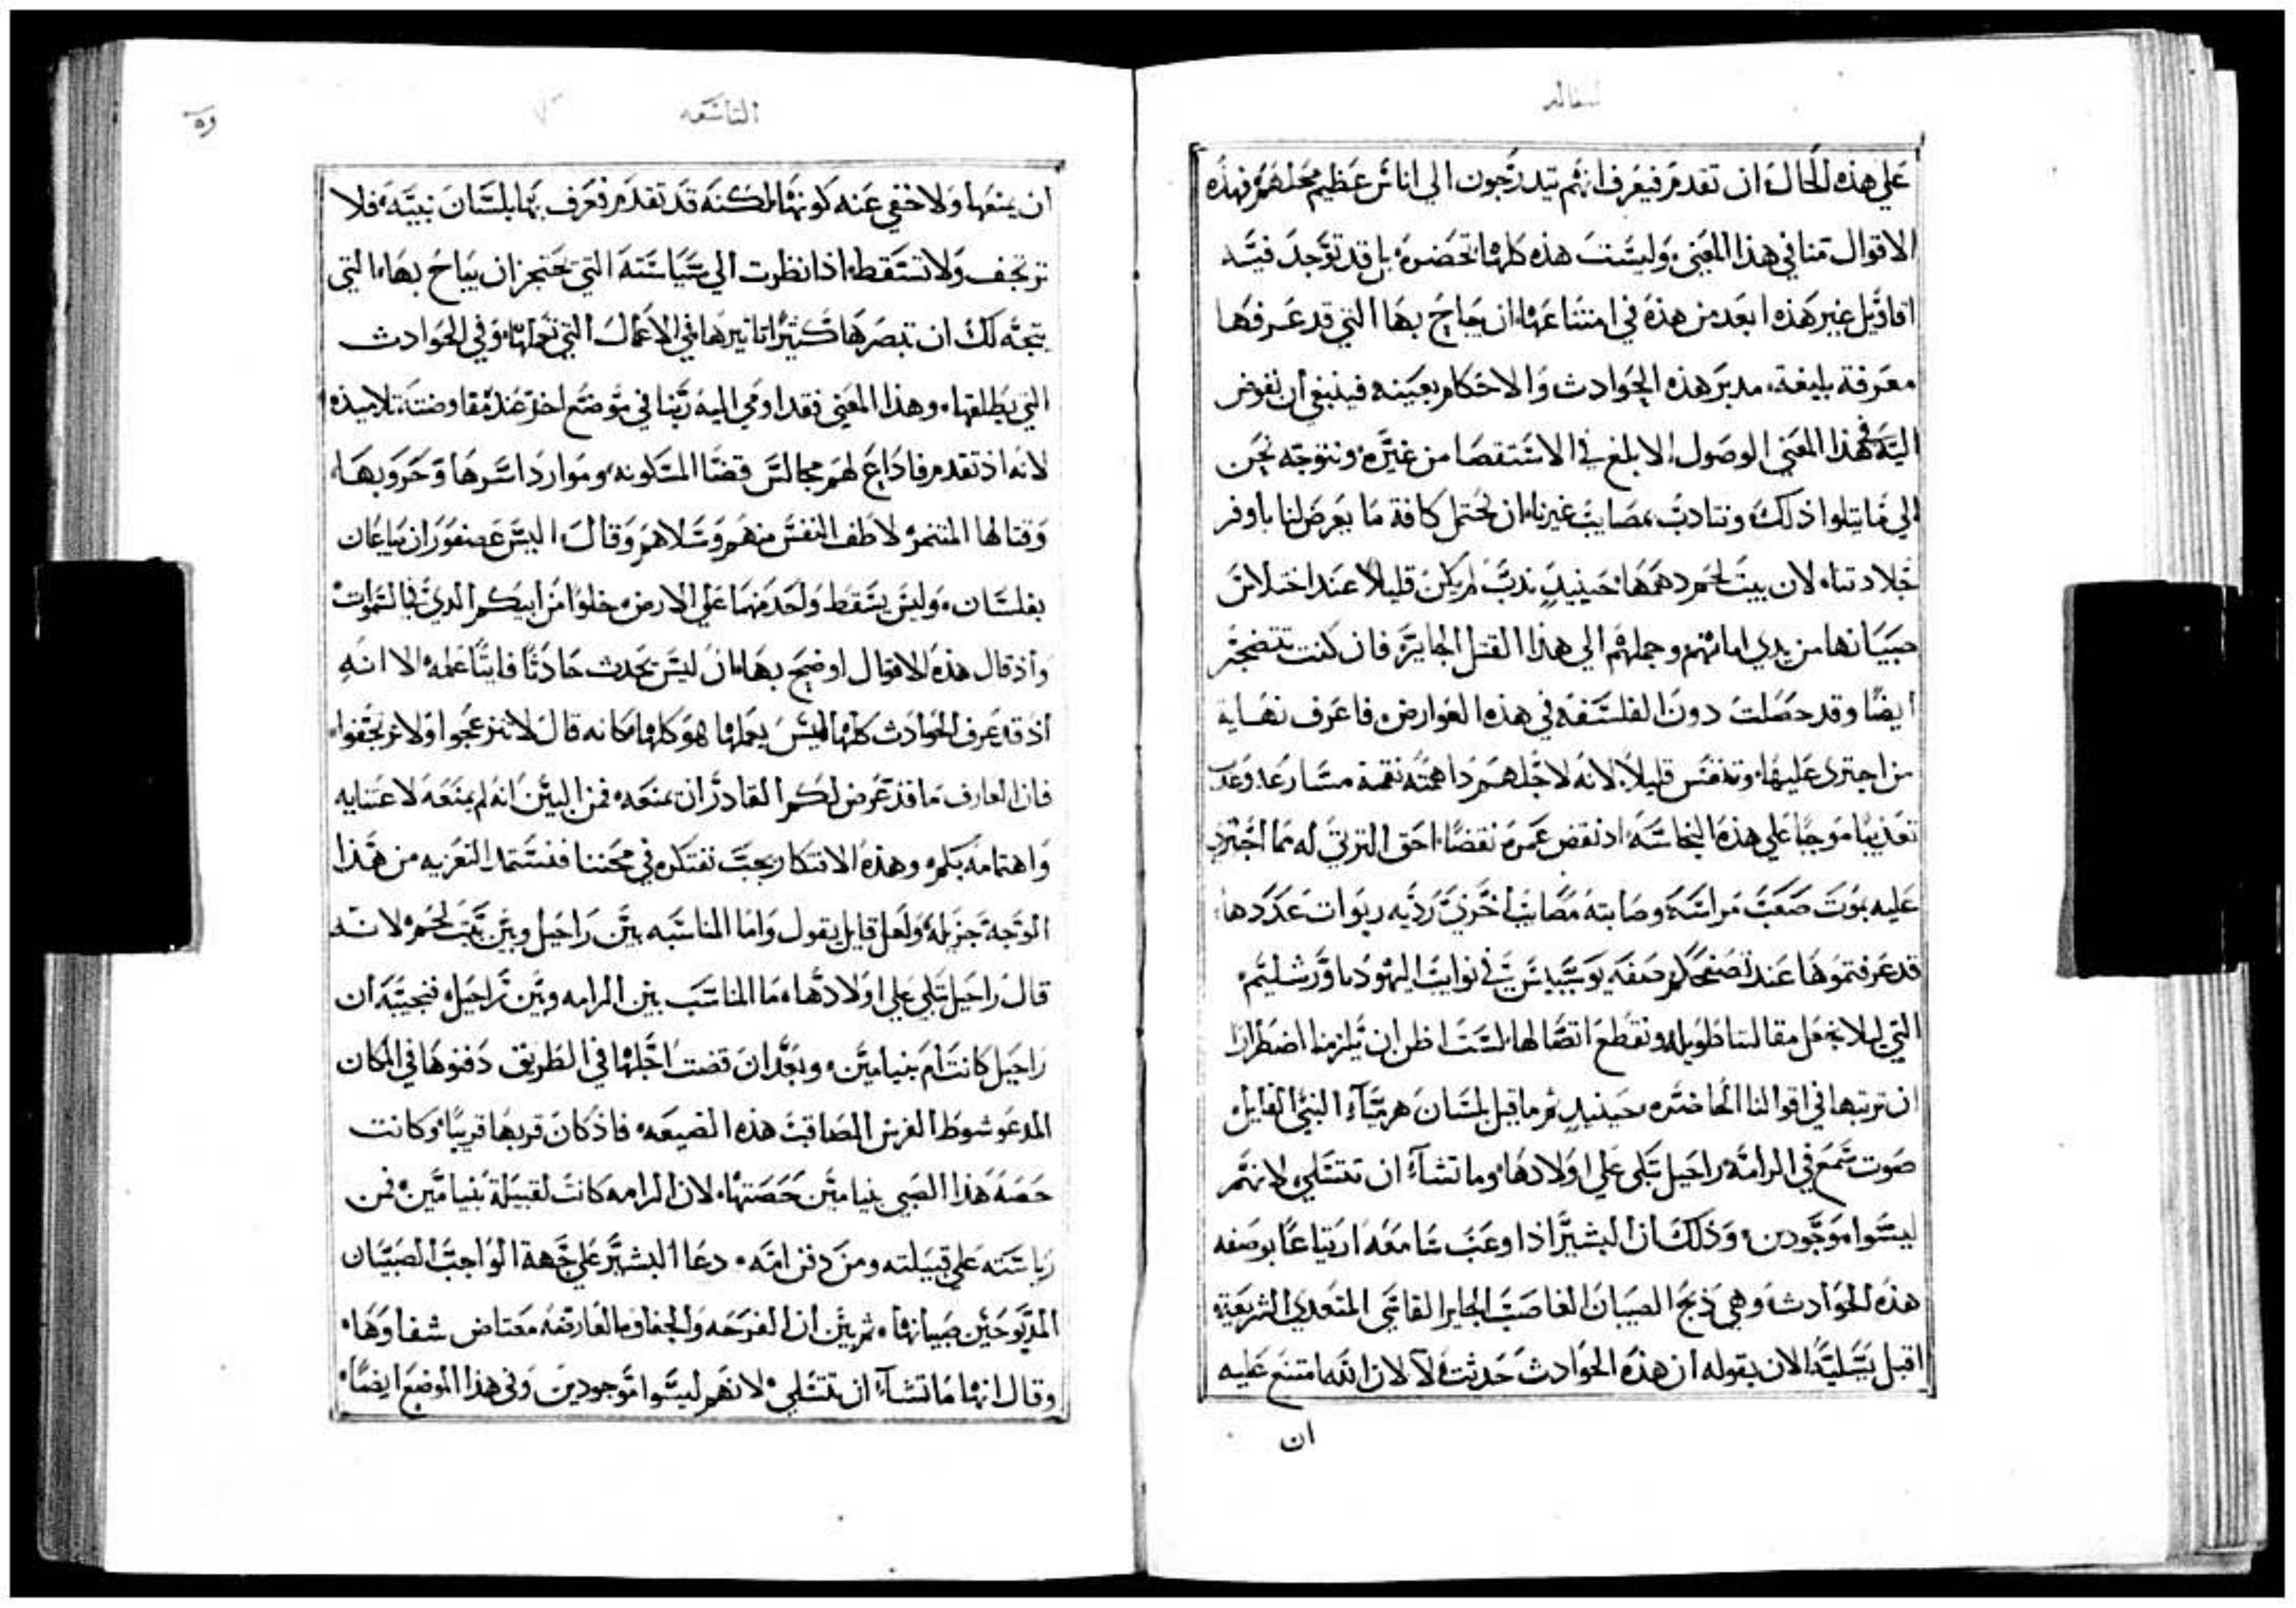 المقاله
على هذه الحال ان تقدم فيعرف انهم يتدرجون الى اناس عظيم محلهم فهذه
الاقوال منا في هذا المعنى وليست هذه كلها تحضره بل قد توجد فيه
اقاويل غير هذه ابعد من هذه في امتناعها ان يحاج بها التي قد عرفها
معرفة بليغة مدبر هذه الحوادث والاحكام بعينه فينبغي ان نفوض
اليه في هذا المعنى الوصول الابلغ في الاستقصا من غيره ونتوجه نحن
الى ما يتلوا ذلك ونتادب بمصايب غيرنا ان نحتمل كافة ما يعرض لنا باوفر
جلادتنا لان بيت لحم دهمها حينيد ندب لم يكن قليلا عند اختلاس
صبيانها من يدي امهاتهم وحملهم الى هذا القتل الجاير فان كنت تتضجر
ايضا وقد حصلت دون الفلسفه في هذه العوارض فاعرف نهاية
من اجترى عليها وتنفس قليلا لانه لاجلهم داهمته نقمة مسارعه وعدب
تعذيبا موجبا على هذه النجاسة اد نقض عمره نقضا احق الترتي له مما اجترى
عليه بموت صعب مراسه وصابته مصايب اخرى رديه ربوات عددها
قد عرفتموها عند تصفحكم صفة يوسيبس في نوايب اليهود باورشليم
التي ليلا نجعل مقالتنا طويله ونقطع اتصالها لست اظن ان يلزمنا اضطرارا
ان نرتبها في اقوالنا الحاضره حينيد ثم ما قيل بلسان هرميآء النبي القايل
صوت سمع في الرامة راحيل تبكي على اولادها وما تشآء ان تتسلى لانهم
ليسوا موجودين وذلك ان البشير اذ اوعب سامعه ارتياعا بوصفه
هذه الحوادث وهي ذبح الصبيان الغاصب الجاير القاسي المتعدي الشريعة
اقبل يسليه الان بقوله ان هذه الحوادث حدثت لا لان الله امتنع عليه
ان
التاسعه
ان يمنعها ولا خفي عنه كونها لكنه قد تقدم فعرف بها بلسان نبيه فلا
ترتجف ولا تسقط اذا نظرت الى سياسته التي تحتجز ان يباح بها التي
يتجه لك ان تبصرها كثيرا تاتيرها في الاعمال التي تعملها وفي الحوادث
التي يطلقها وهذا المعنى فقد اومى اليه ربنا في موضع اخر عند مفاوضته تلاميذه
لانه اذ تقدم فاذاع لهم مجالس قضا المسكونه وموارد اسرها وحروبها
وقتالها المتنمر لاطف النفس منهم وسلاهم وقال اليس عصفوران يباعان
بفلسان وليس يسقط واحد منهما على الارض خلوا من ابيكم الدي في السموات
واذ قال هذه الاقوال اوضح بها ان ليس يحدث حادثا فايتا علمه الا انه
اذ قد عرف الحوادث كلها اليس يعملها هو كلها مكانه قال لا تنزعجوا ولا ترتجفوا
فان العارف ما قد عرض لكم القادر ان يمنعه فمن البين انه لم يمنعه لاعتنايه
واهتمامه بكم وهذه الافتكار يجب نفتكره في محننا فنستمد التعزيه من هذا
الوجه جزيله ولعل قايل يقول واما المناسبه بين راحيل وبين بيت لحم لانه
قال راحيل تبكي على اولادها ما المناسب بين الرامه وبين راحيل فنجيبه ان
راحيل كانت ام بنيامين وبعد ان قضت اجلها في الطريق دفنوها في المكان
المدعو شوط الفرس المصاقب هذه الضيعه فاذ كان قربها قريبا وكانت
حصة هذا الصبي بنيامين حصتها لان الرامه كانت لقبيلة بنيامين فمن
رياسته على قبيلته ومن دفن امه دعا البشير على جهة الواجب الصبيان
المدبوحين صبيانها ثم بين ان القرحه والجفاوه العارضه معتاض شفاوها
وقال انها ما تشآء ان تتسلى لانهم ليسوا موجودين وفي هذا الموضع ايضا